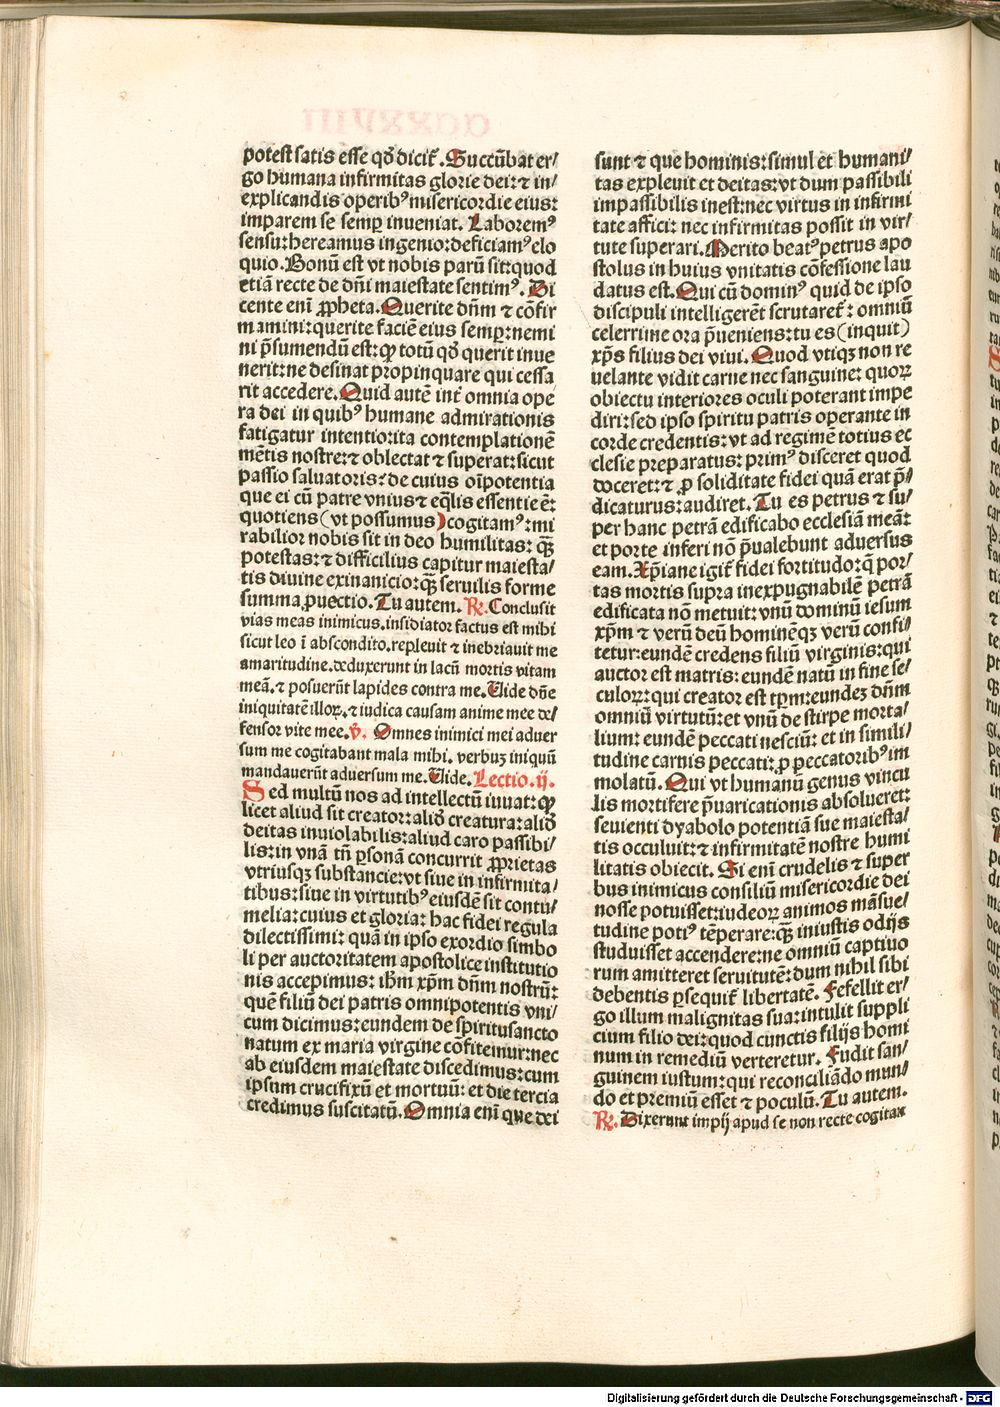 potest satis esse qď dicit̃. Succũbat er/
go humana infirmitas glorie dei: ⁊ in/
explicandis operibꝰ misericordie eius:
imparem se semꝑ inueniat. Laboremꝰ
sensu: hereamus ingenio: deficiamꝰ elo
quio. Bonũ est vt nobis parũ sit: quod
etiã recte de dñi maiestate sentimꝰ. Di
cente eni ꝓpheta. Querite dñm ⁊ cõfir
mamini: querite faciẽ eius semꝑ: nemi
ni p̃sumendũ est: ꝙ totũ qď querit inue
nerit: ne desinat propinquare qui cessa
rit accedere. Quid autẽ int̃ omnia ope
ra dei in quibꝰ humane admirationis
fatigatur intentio: ita contemplationẽ
mẽtis nostre: ⁊ oblectat ⁊ superat: sicut
passio saluatoris: de cuius oĩpotentia
que ei cũ patre vnius ⁊ eq̃lis essentie ẽ:
quotiens (vt possumus) cogitamꝰ: mi
rabilior nobis sit in deo humilitas: q̃ꝫ
potestas: ⁊ difficilius capitur maiesta/
tis diuine exinanicio: q̃ꝫ seruilis forme
summa ꝓuectio. Tu autem. ℟. Conclusit
vias meas inimicus. insidiator factus est mihi
sicut leo ĩ abscondito. repleuit ⁊ inebriauit me
amaritudine. deduxerunt in lacũ mortis vitam
meã. ⁊ posuerũt lapides contra me. Uide dñe
iniquitatẽ illoꝝ. ⁊ iudica causam anime mee de/
fensor vite mee. ℣. Omnes inimici mei aduer
sum me cogitabant mala mihi. verbuꝫ iniquũ
mandauerũt aduersum me. Uide. Lectio. ij.
Sed multũ nos ad intellectũ iuuat: ꝙ
licet aliud sit creator: aliď creatura: aliď
deitas inuiolabilis: aliud caro passibi/
lis: in vnã tñ ꝑsonã concurrit ꝓprietas
vtriusqꝫ substancie: vt siue in infirmita/
tibus: siue in virtutibꝰ eiusdẽ sit contu/
melia: cuius et gloria: hac fidei regula
dilectissimi: quã in ipso exordio simbo
li per auctoritatem apostolice institutio
nis accepimus: ihm̃ xp̃m dñm nostrũ:
quẽ filiũ dei patris omnipotentis vni/
cum dicimus: eundem de spiritusancto
natum ex maria virgine cõfitemur: nec
ab eiusdem maiestate discedimus: cum
ipsum crucifixũ et mortuũ: et die tercia
credimus suscitatũ. Omnia eni que dei
sunt ⁊ que hominis: simul et humani/
tas expleuit et deitas: vt dum passibili
impassibilis inest: nec virtus in infirmi
tate affici: nec infirmitas possit in vir/
tute superari. Merito beatꝰ petrus apo
stolus in huius vnitatis cõfessione lau
datus est. Qui cũ dominꝰ quid de ipso
discipuli intelligerẽt scrutaret̃: omniũ
celerrime ora p̃ueniens: tu es (inquit)
xp̃s filius dei viui. Quod vtiqꝫ non re
uelante vidit carne nec sanguine: quoꝝ
obiectu interiores oculi poterant impe
diri: sed ipso spiritu patris operante in
corde credentis: vt ad regimẽ totius ec
clesie preparatus: primꝰ disceret quod
doceret: ⁊ ꝓ soliditate fidei quã erat p̃/
dicaturus: audiret. Tu es petrus ⁊ su/
per hanc petrã edificabo ecclesiã meã:
et porte inferi nõ p̃ualebunt aduersus
eam. Xp̃iane igit̃ fidei fortitudo: q̃ por/
tas mortis supra inexpugnabilẽ petrã
edificata nõ metuit: vnũ dominũ iesum
xp̃m ⁊ verũ deũ hominẽqꝫ verũ confi/
tetur: eundẽ credens filiũ virginis: qui
auctor est matris: eundẽ natũ in fine se/
culoꝝ: qui creator est tp̃m: eundeꝫ dñm
omniũ virtutũ: et vnũ de stirpe morta/
lium: eundẽ peccati nesciũ: et in simili/
tudine carnis peccati: ꝓ peccatoribꝰ im
molatũ. Qui vt humanũ genus vincu
lis mortifere p̃uaricationis absolueret:
seuienti dyabolo potentiã sue maiesta/
tis occuluit: ⁊ infirmitatẽ nostre humi
litatis obiecit. Si eni crudelis ⁊ super
bus inimicus consiliũ misericordie dei
nosse potuisset: iudeoꝝ animos mãsue/
tudine potiꝰ tẽperare: q̃ꝫ iniustis odijs
studuisset accendere: ne omniũ captiuo
rum amitteret seruitutẽ: dum nihil sibi
debentis ꝑsequit̃ libertatẽ. Fefellit er/
go illum malignitas sua: intulit suppli
cium filio dei: quod cunctis filijs homi
num in remediũ verteretur. Fudit san/
guinem iustum: qui reconciliãdo mun/
do et premiũ esset ⁊ poculũ. Tu autem.
℟. Dixerunt impij apud se non recte cogitan
Digitalisierung gefördert durch die Deutsche Forschungsgemeinschaft - DFG